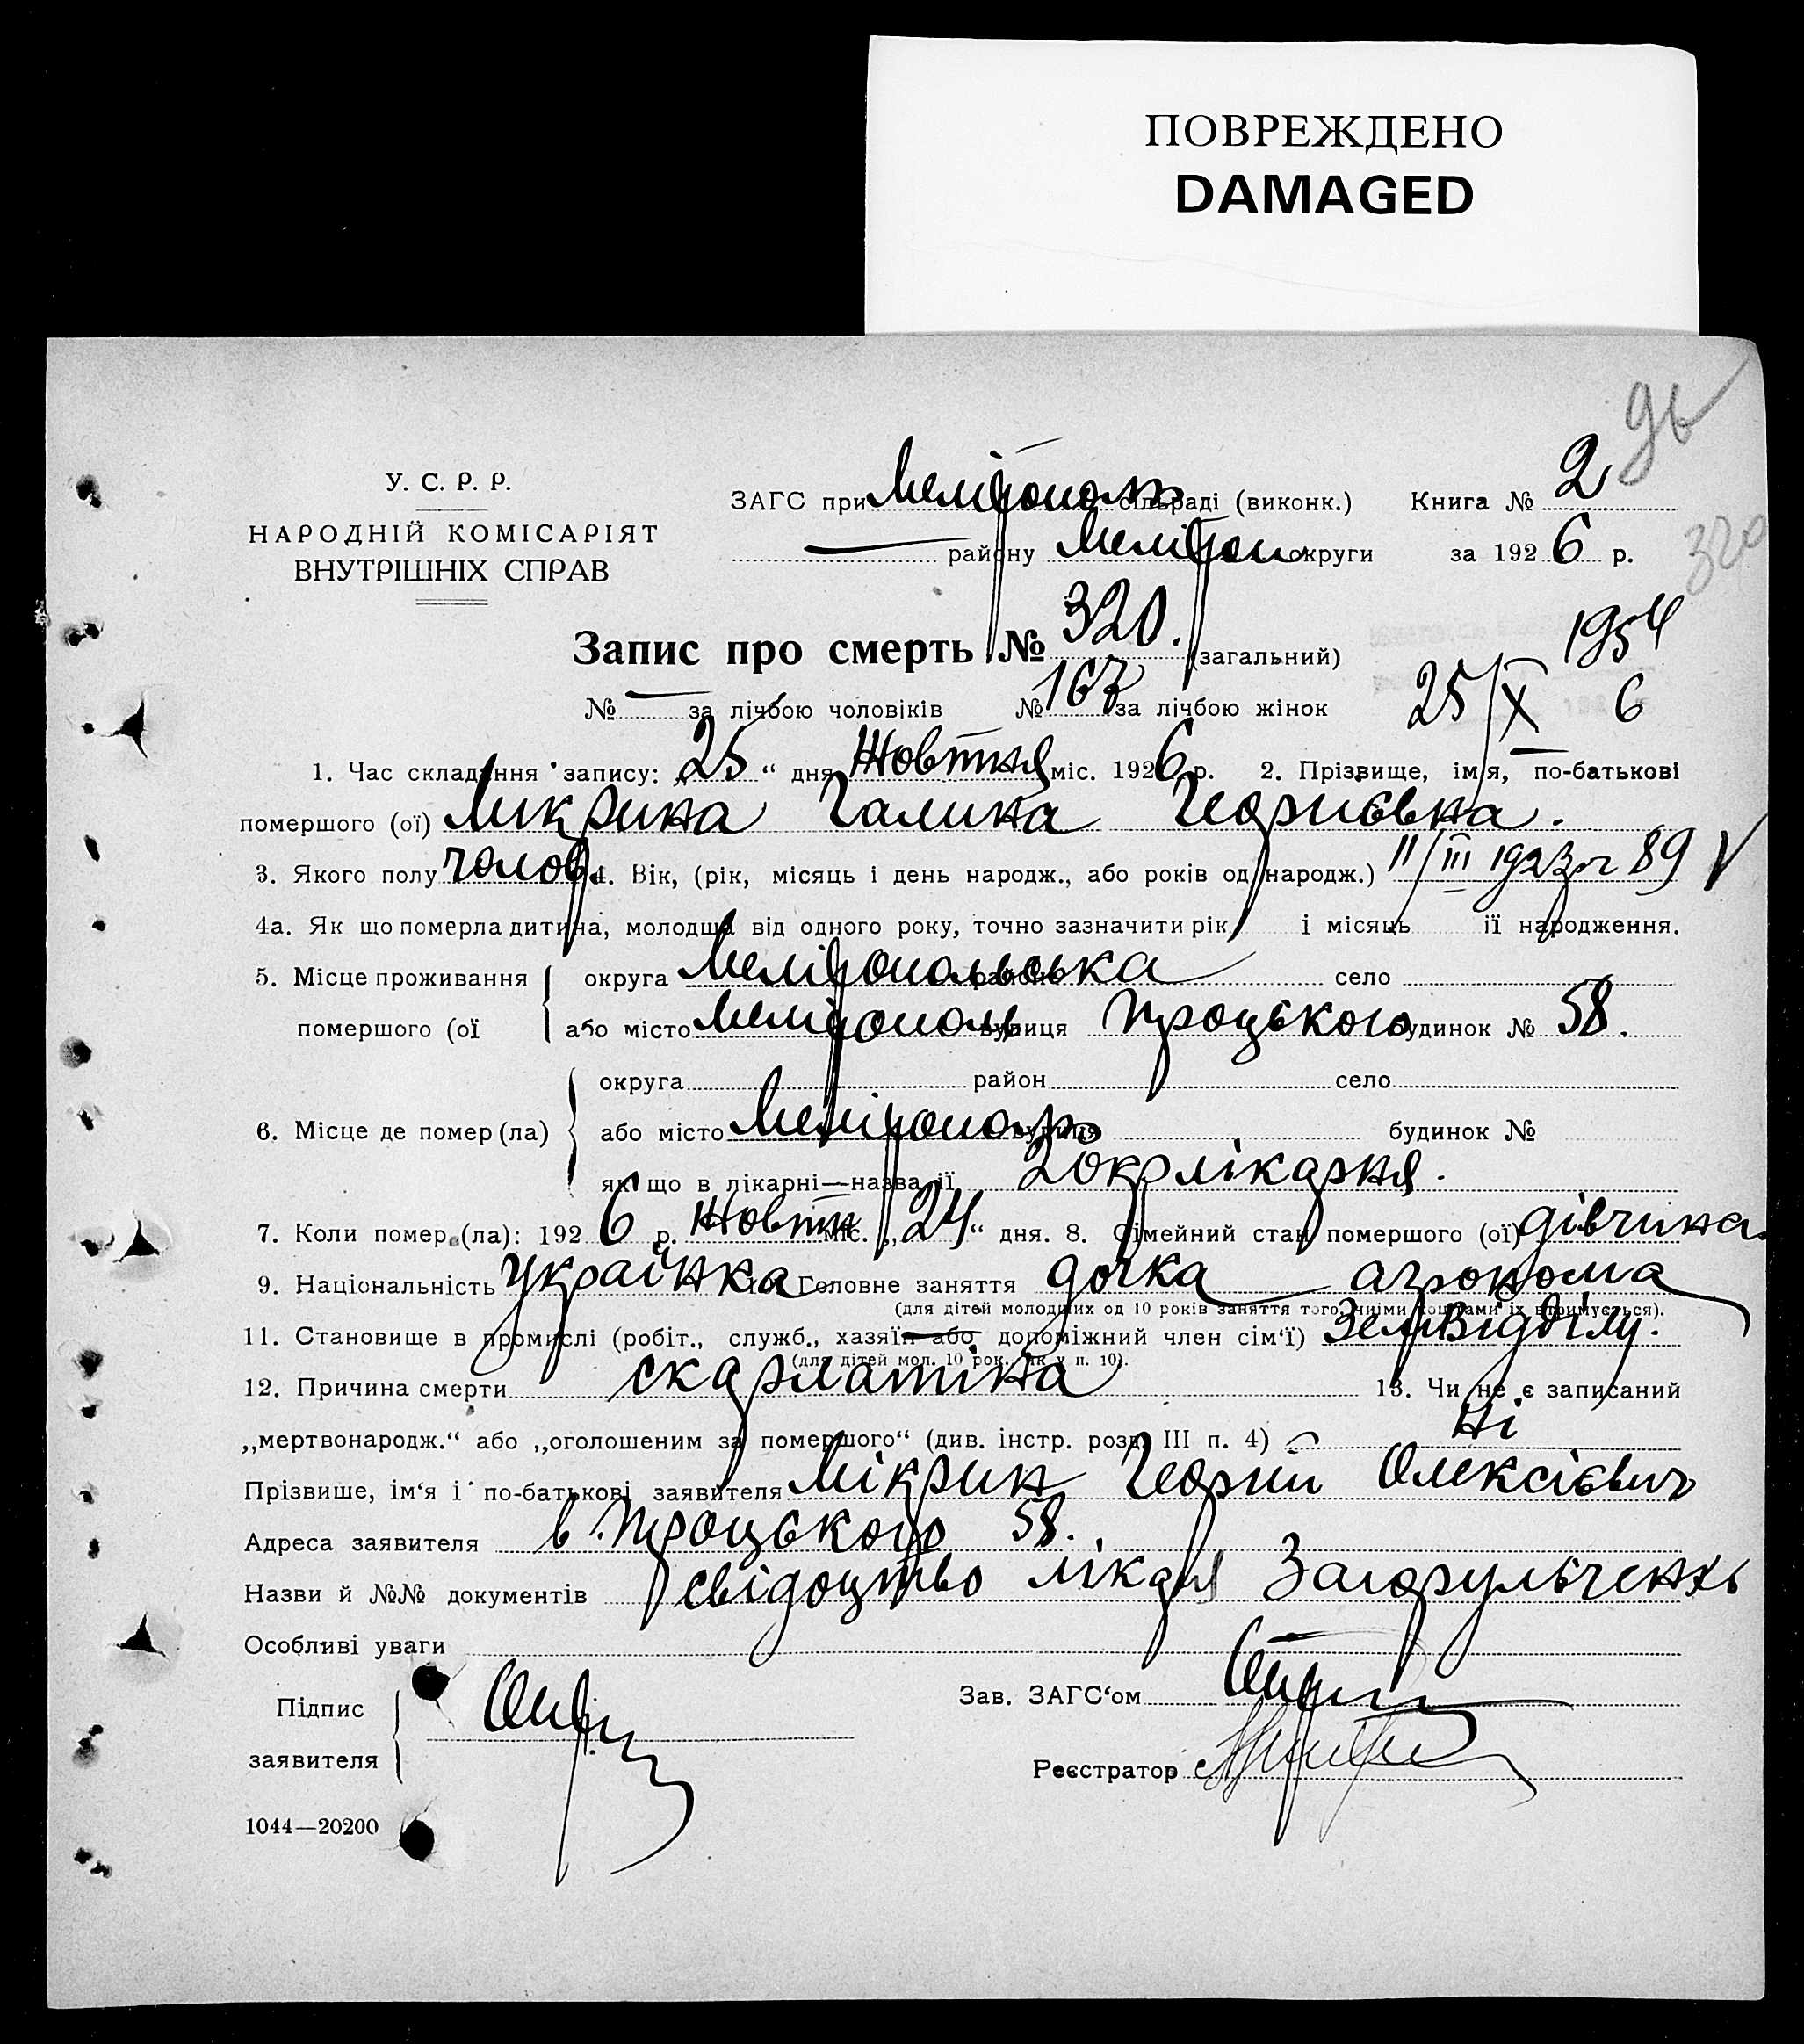 ПОВРЕЖДЕНО
DAMAGED
У. С. Р. Р.
НАРОДНІЙ КОМІСАРІЯТ
ВНУТРІШНІХ СПРАВ
ЗАГС при Мелітополь сільраді (виконк.) Книга № 2
— району Мелітоп округи за 1926 р.
320
Запис про смерть № 320. (загальний) 1954
№ — за лічбою чоловіків № 167 за лічбою жінок 25/X 6
1. Час складання запису: „25“ дня Жовтня міс. 1926 р. 2. Прізвище, ім'я, по-батькові
помершого (ої) Микрина Галина Георгієвна.
3. Якого полу чолов. 4. Вік, (рік, місяць і день народж., або років од народж.) 11/III 1923 р 89 V
4а. Як що померла дитина, молодша від одного року, точно зазначити рік і місяць її народження.
5. Місце проживання округа Мелітопольська район село
помершого (ої або місто Мелітополь вулиця Троцького будинок № 58.
округа район село
6. Місце де помер (ла) або місто Мелітополь вулиця будинок №
як що в лікарні—назва її 2 окрлікарня.
7. Коли помер (ла): 1926 р. Жовтн міс. „24“ дня. 8. Сімейний стан помершого (ої) дівчина.
9. Національність Українка 10. Головне заняття дочка агронома
(для дітей молодших од 10 років заняття того, чиїми коштами їх втримується).
11. Становище в промислі (робіт., служб., хазяїн або допоміжний член сім'ї) Земвідділу.
(для дітей мол. 10 рок. як у п. 10).
12. Причина смерти скарлатіна 13. Чи не є записаний
„мертвонародж.“ або „оголошеним за помершого“ (див. інстр. розд. III п. 4) Ні
Прізвище, ім'я і по-батькові заявителя Мікрин Георгій Олексієвич
Адреса заявителя в. Троцького 58.
Назви й №№ документів свідоцтво лікаря Загорульченхь
Особливі уваги
Підпис
заявителя
Зав. ЗАГС'ом
Реєстратор
1044—20200